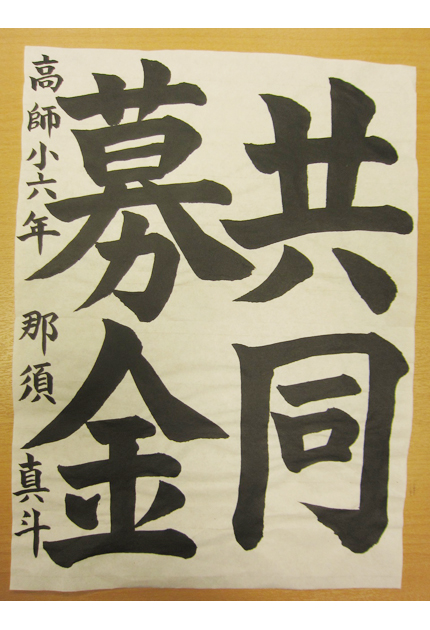 共同
募金
高師小六年 那須 真斗